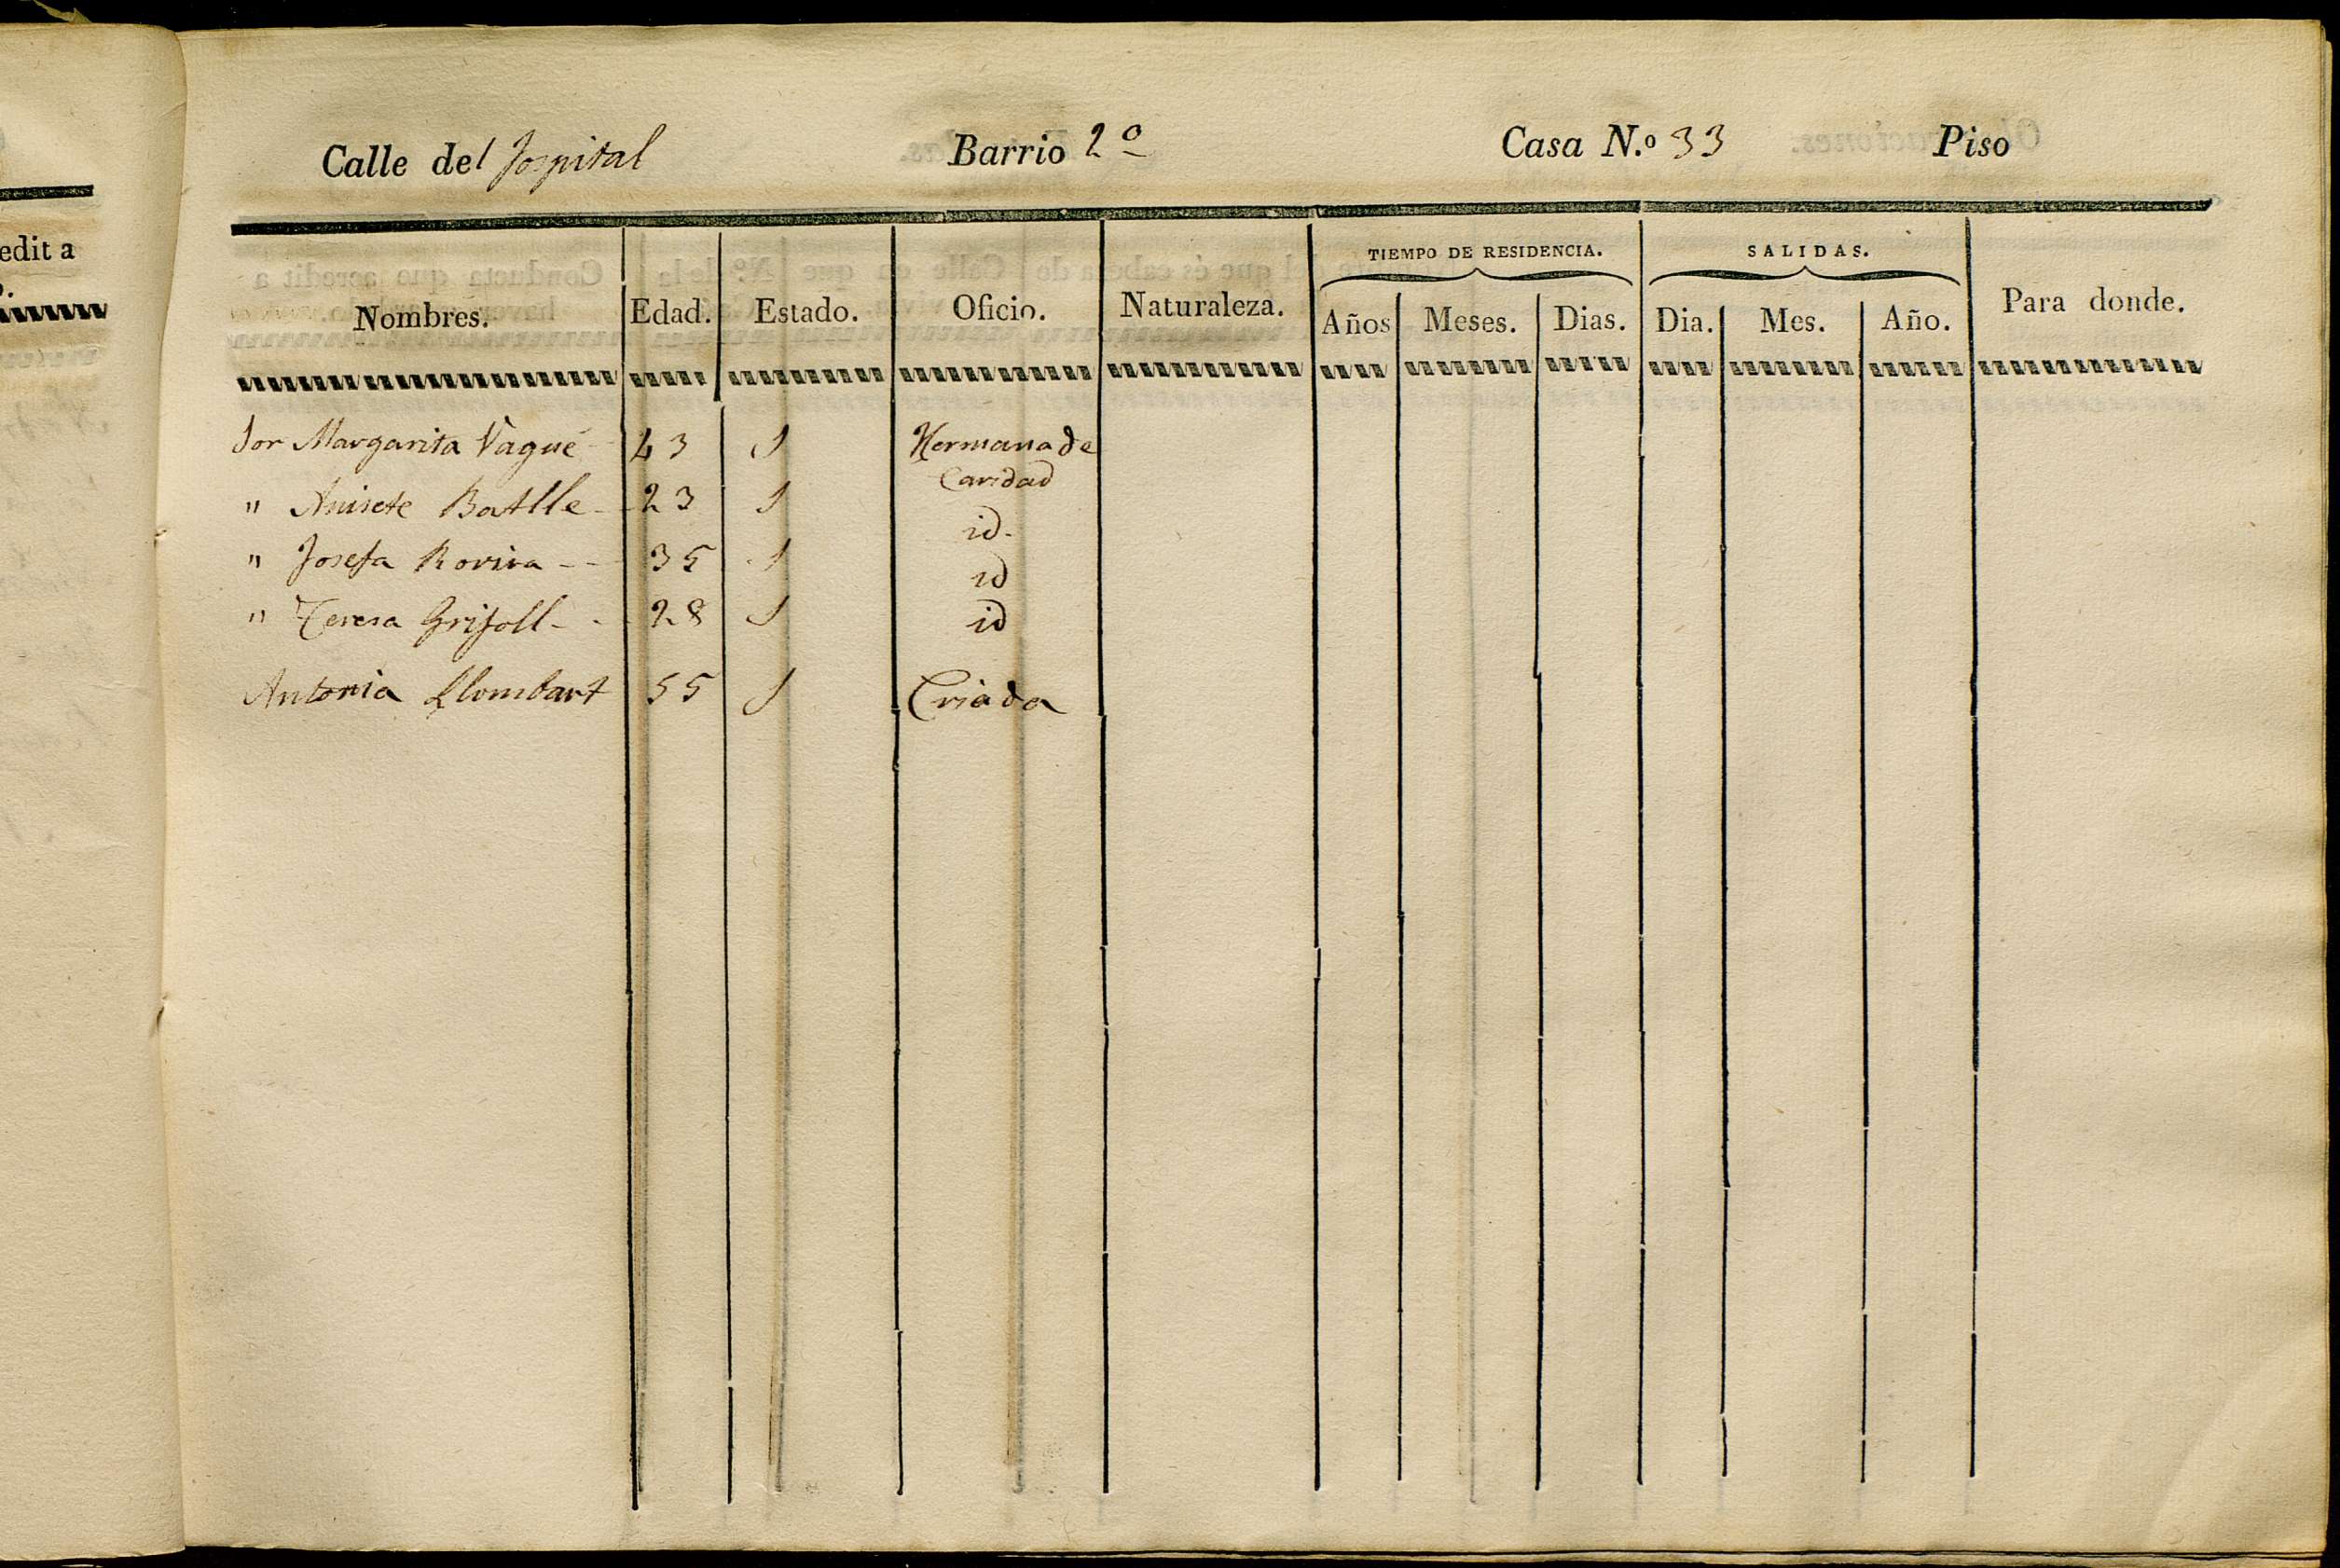 edit a
Calle del Jospital Barrio 2º Casa N.º 33 Piso
TIEMPO DE RESIDENCIA. SALIDAS.
Nombres. Edad. Estado. Oficio. Naturaleza. Años Meses. Dias. Dia. Mes. Año. Para donde.
Sor Margarita Vagué 43 S Hermana de
Caridad
" Anisete Batlle 23 S id.
" Josefa Rovira 35 S id
" Teresa Grifoll 28 S id
Antonia Llombart 55 S Criada